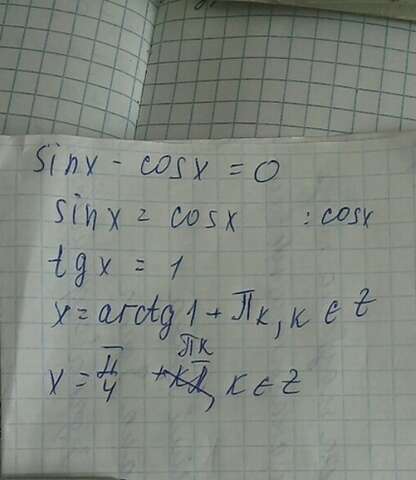 sinx - cosx = 0
sinx = cosx : cosx
tgx = 1
x = arctg1 + Πк, к ∈ Z
x = π/4 + Πк, к ∈ Z